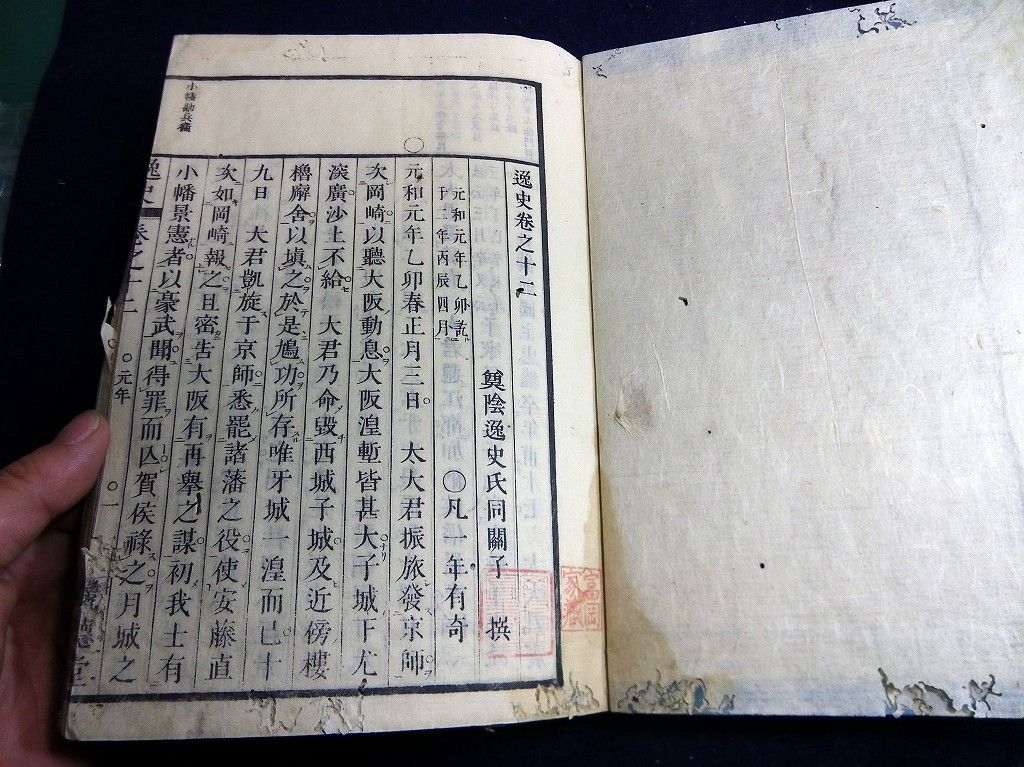 逸史卷之十二
奠陰逸史氏同關子 撰
元和元年乙卯訖
于二年丙辰四月
○凡一年有奇
○
元和元年乙卯春正月三日 太大君振旅發京師
次岡崎以聽大阪動息大阪湟塹皆甚大子城下尤
深廣沙土不給 大君乃命毀西城子城及近傍樓
櫓廨舍以塡之於是鳩功所存唯牙城一湟而已十
九日 大君凱旋于京師悉罷諸藩之役使安藤直
次如岡崎報之且密告大阪有再擧之謀初我士有
小幡景憲者以豪武聞得罪而亡賀侯祿之月城之
小幡勘兵衞
逸史 卷之十二 ○元年 ○一
富岡
家藏